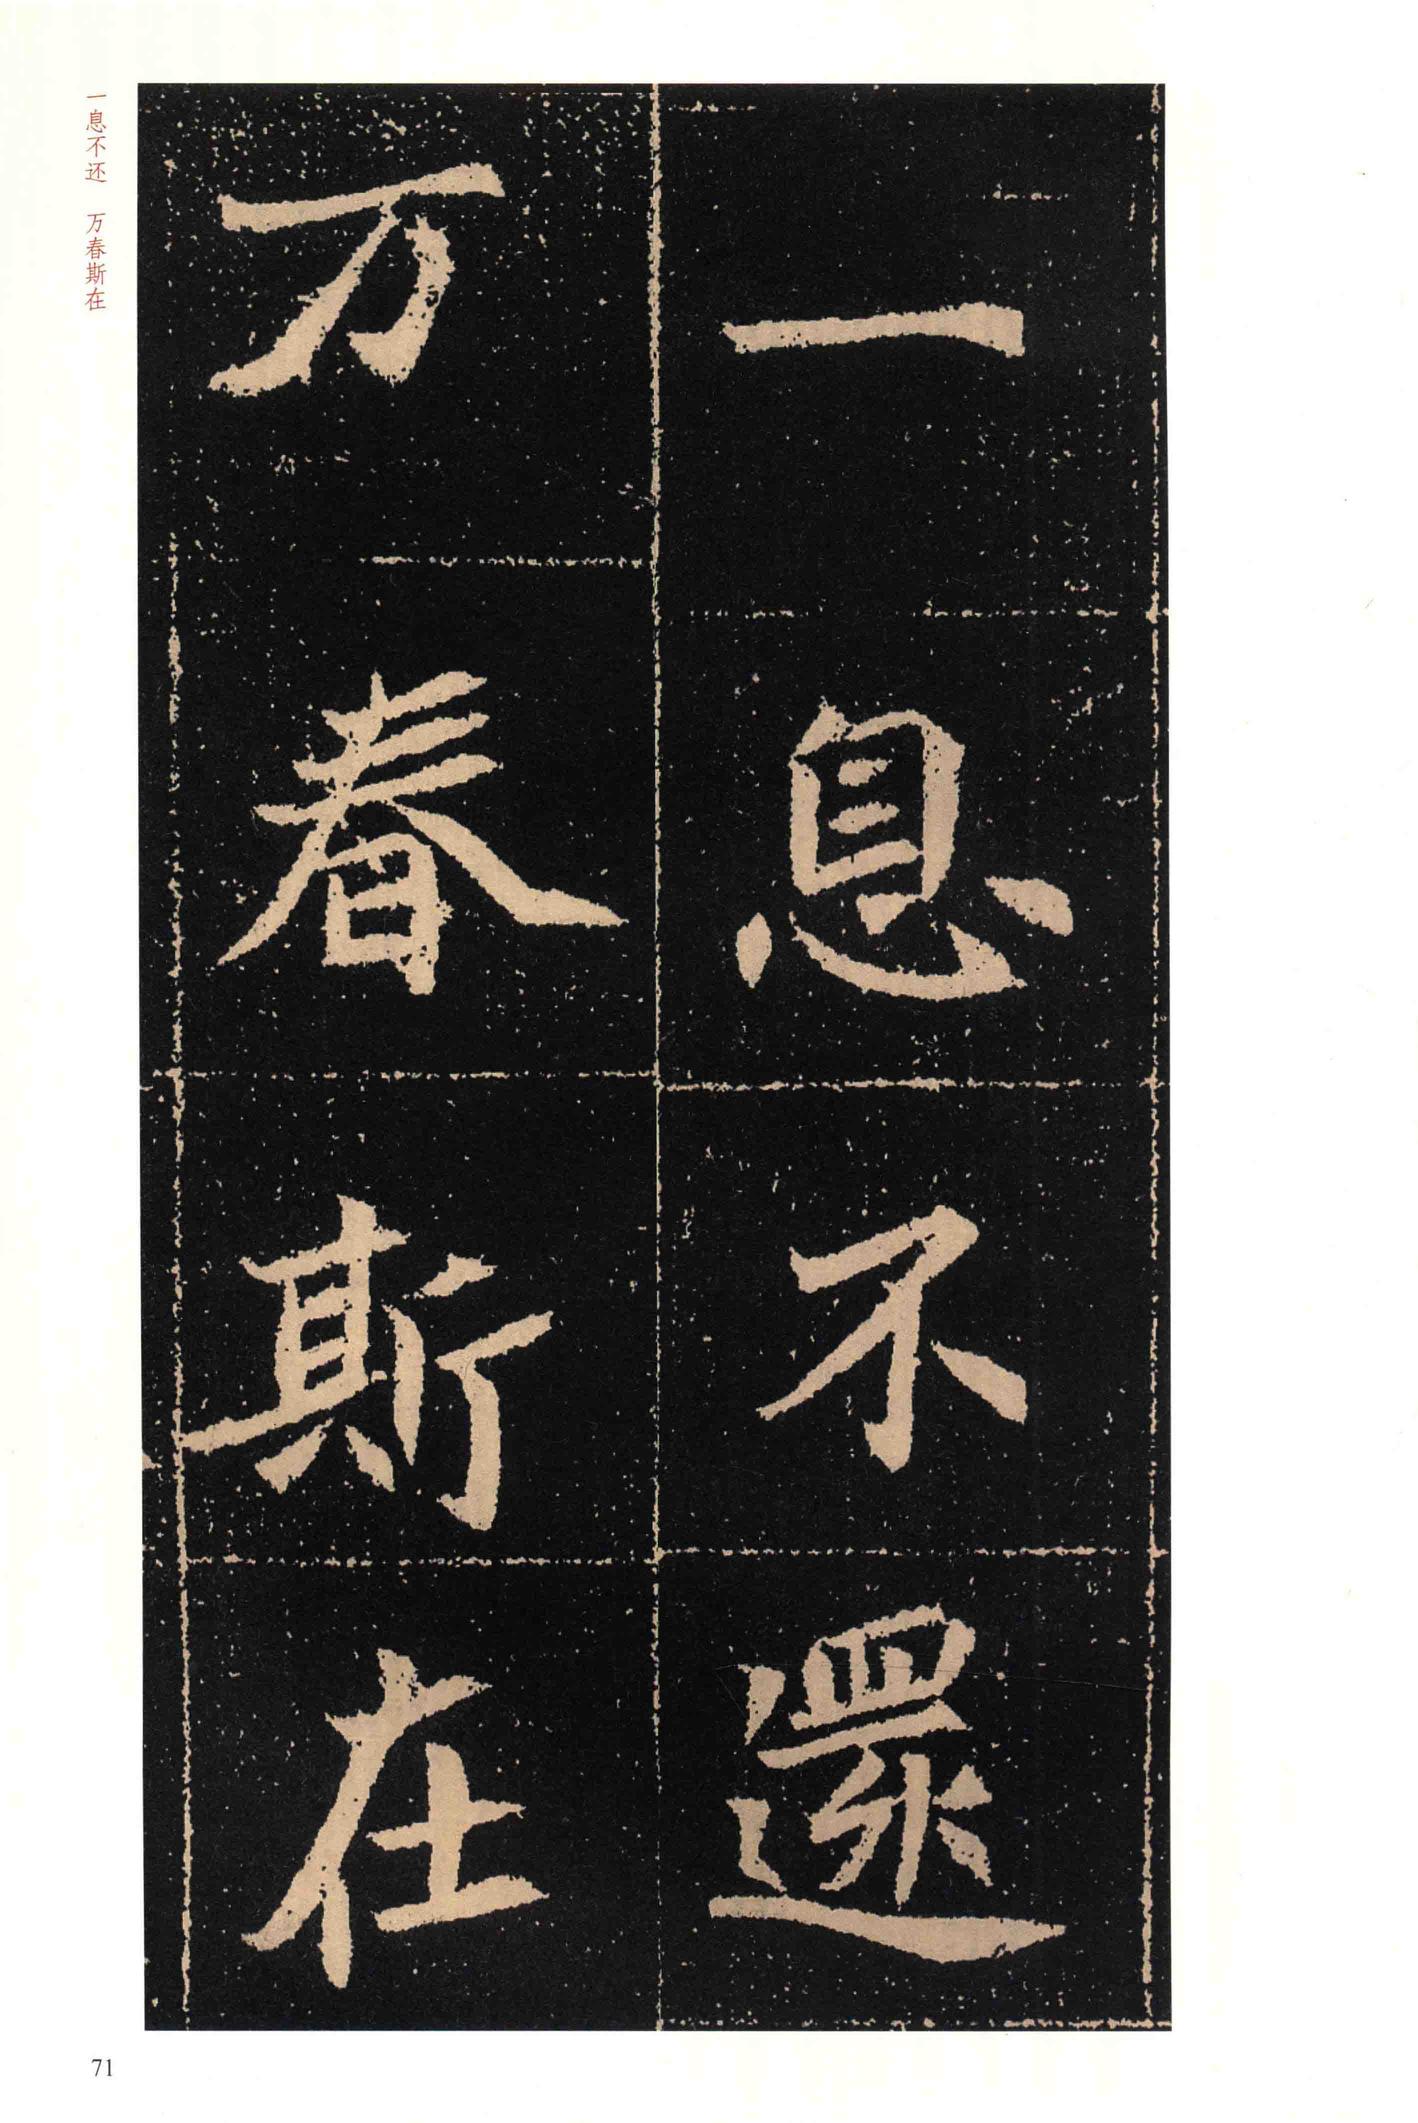 一息不還
万春斯在
一息不还 万春斯在
71